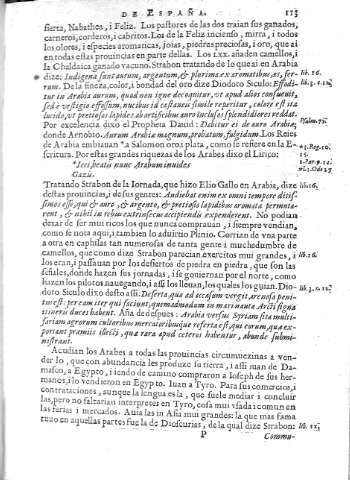 DE ESPAÑA. 113
sierta, Nabathea, i Feliz. Los pastores de las dos traían sus ganados,
carneros, corderos, i cabritos. Los de la Feliz incienso, mirra, i todos
los olores, i especias aromaticas, joias, piedras preciosas, i oro, que ai
en todas estas provincias en parte dellas. Los LXX. añaden camellos, i
la Chaldaica ganado vacuno. Strabon tratando de lo que ai en Arabia
dize: Indigena sunt aurum, argentum, & plurima ex aromatibus, æs, fer- lib. 16.
rum. De la fineza, color, i bondad del oro dize Diodoro Siculo: Effodi- lib. 3. c. 12.
tur in Arabia aurum, quod non igne decoquitur, vt apud alios consuevit,
sed è vestigio effossum, nucibus id castaneis simile reperitur, colore
lucido, vt pretiosi lapides ab artificibus auro inclusi splendidiores reddat.
Por excelencia dixo el Propheta David: Dabitur ei de auro Arabiæ, Psalm. 71.
donde Arnobio. Aurum Arabia magnum, probatum, fulgidum. Los Reies
de Arabia embiauan a Salomon oro i plata, como se refiere en la Es- 3. Reg. 10.
critura. Por estas grandes riquezas de los Arabes dixo el Lirico: 15.
Icci, beatis nunc Arabum inuides
Gazis.
Tratando Strabon de la Jornada, que hizo Elio Gallo en Arabia, dize lib. 16.
destas provincias, i de sus gentes: Audiebat enim eos omni tempore ditis-
simos esse, qui & auro, & argento, & pretiosis lapidibus aromata permuta-
rent, & nihil in rebus extrinsecus accipiendis expenderent. No podian
dexar de ser mui ricos los que nunca comprauan, i siempre vendian,
como se nota aqui, i tambien lo aduirtio Plinio. Corrian de vna parte
a otra en caphilas tan numerosas de tanta gente i muchedumbre de
camellos, que como dize Strabon parecian exercitos mui grandes, i lib. 16.
los eran, i passauan por los desiertos de piedra en piedra, que son las
señales, donde hazen sus jornadas, i se gouiernan por el norte, como
hazen los pilotos nauegando, i assi los lleuan, los quales los guian. Dio-
doro Siculo dixo desto assi: Deserta, qua ad occasum vergit, arenosa peni- lib. 3. c. 12.
tus est: per eam iter qui faciunt, quemadmodum in mari naute Arcti signis
itineris duces habent. Asia de despues: Arabia versus Syriam sita multi-
fariam agrorum cultoribus mercatoribusque referta est, qui eorum, quæ ex-
portant præmiis illecti, quæ rara apud ceteros habentur, abunde submi-
nistrant.
Acudian los Arabes a todas las provincias circunuezinas a ven-
der lo, que con abundancia les produze su tierra, i assi iuan de Da-
masco, a Egypto, i iendo de camino compraron a Ioseph de sus her-
manos, i lo vendieron en Egypto. Iuan a Tyro. Para sus comercios, i
contrataciones, aunque la lengua es la, que suele mediar i concluir
las, pero no faltarian interpretes en Tyro, cosa mui vsada i comun en
las ferias i mercados. Auia las in Asia mui grandes: la que mas fama
tuuo en aquellas partes fue la de Dioscurias, de la qual dize Strabon: lib. 11.
P Commu-